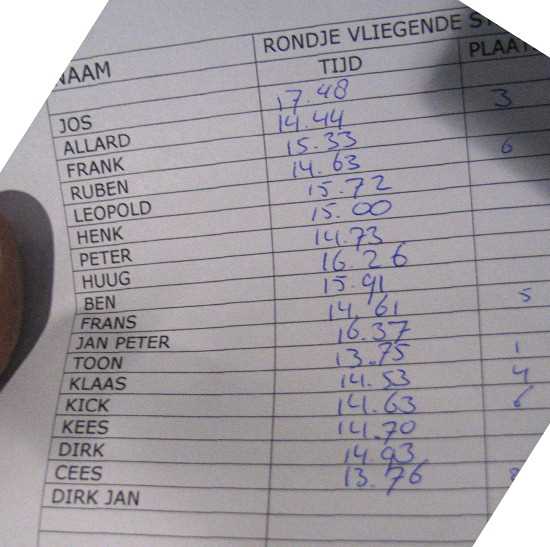 RONDJE VLIEGENDE
NAAM TIJD
JOS 17.48
ALLARD 14.44 3
FRANK 15.33
RUBEN 14.63 6
LEOPOLD 15.72
HENK 15.00
PETER 14.73
HUUG 16.26
BEN 15.91
FRANS 14.61 5
JAN PETER 16.37
TOON 13.75 1
KLAAS 14.53 4
KICK 14.63 6
KEES 14.70
DIRK 14.93
CEES 13.76
DIRK JAN